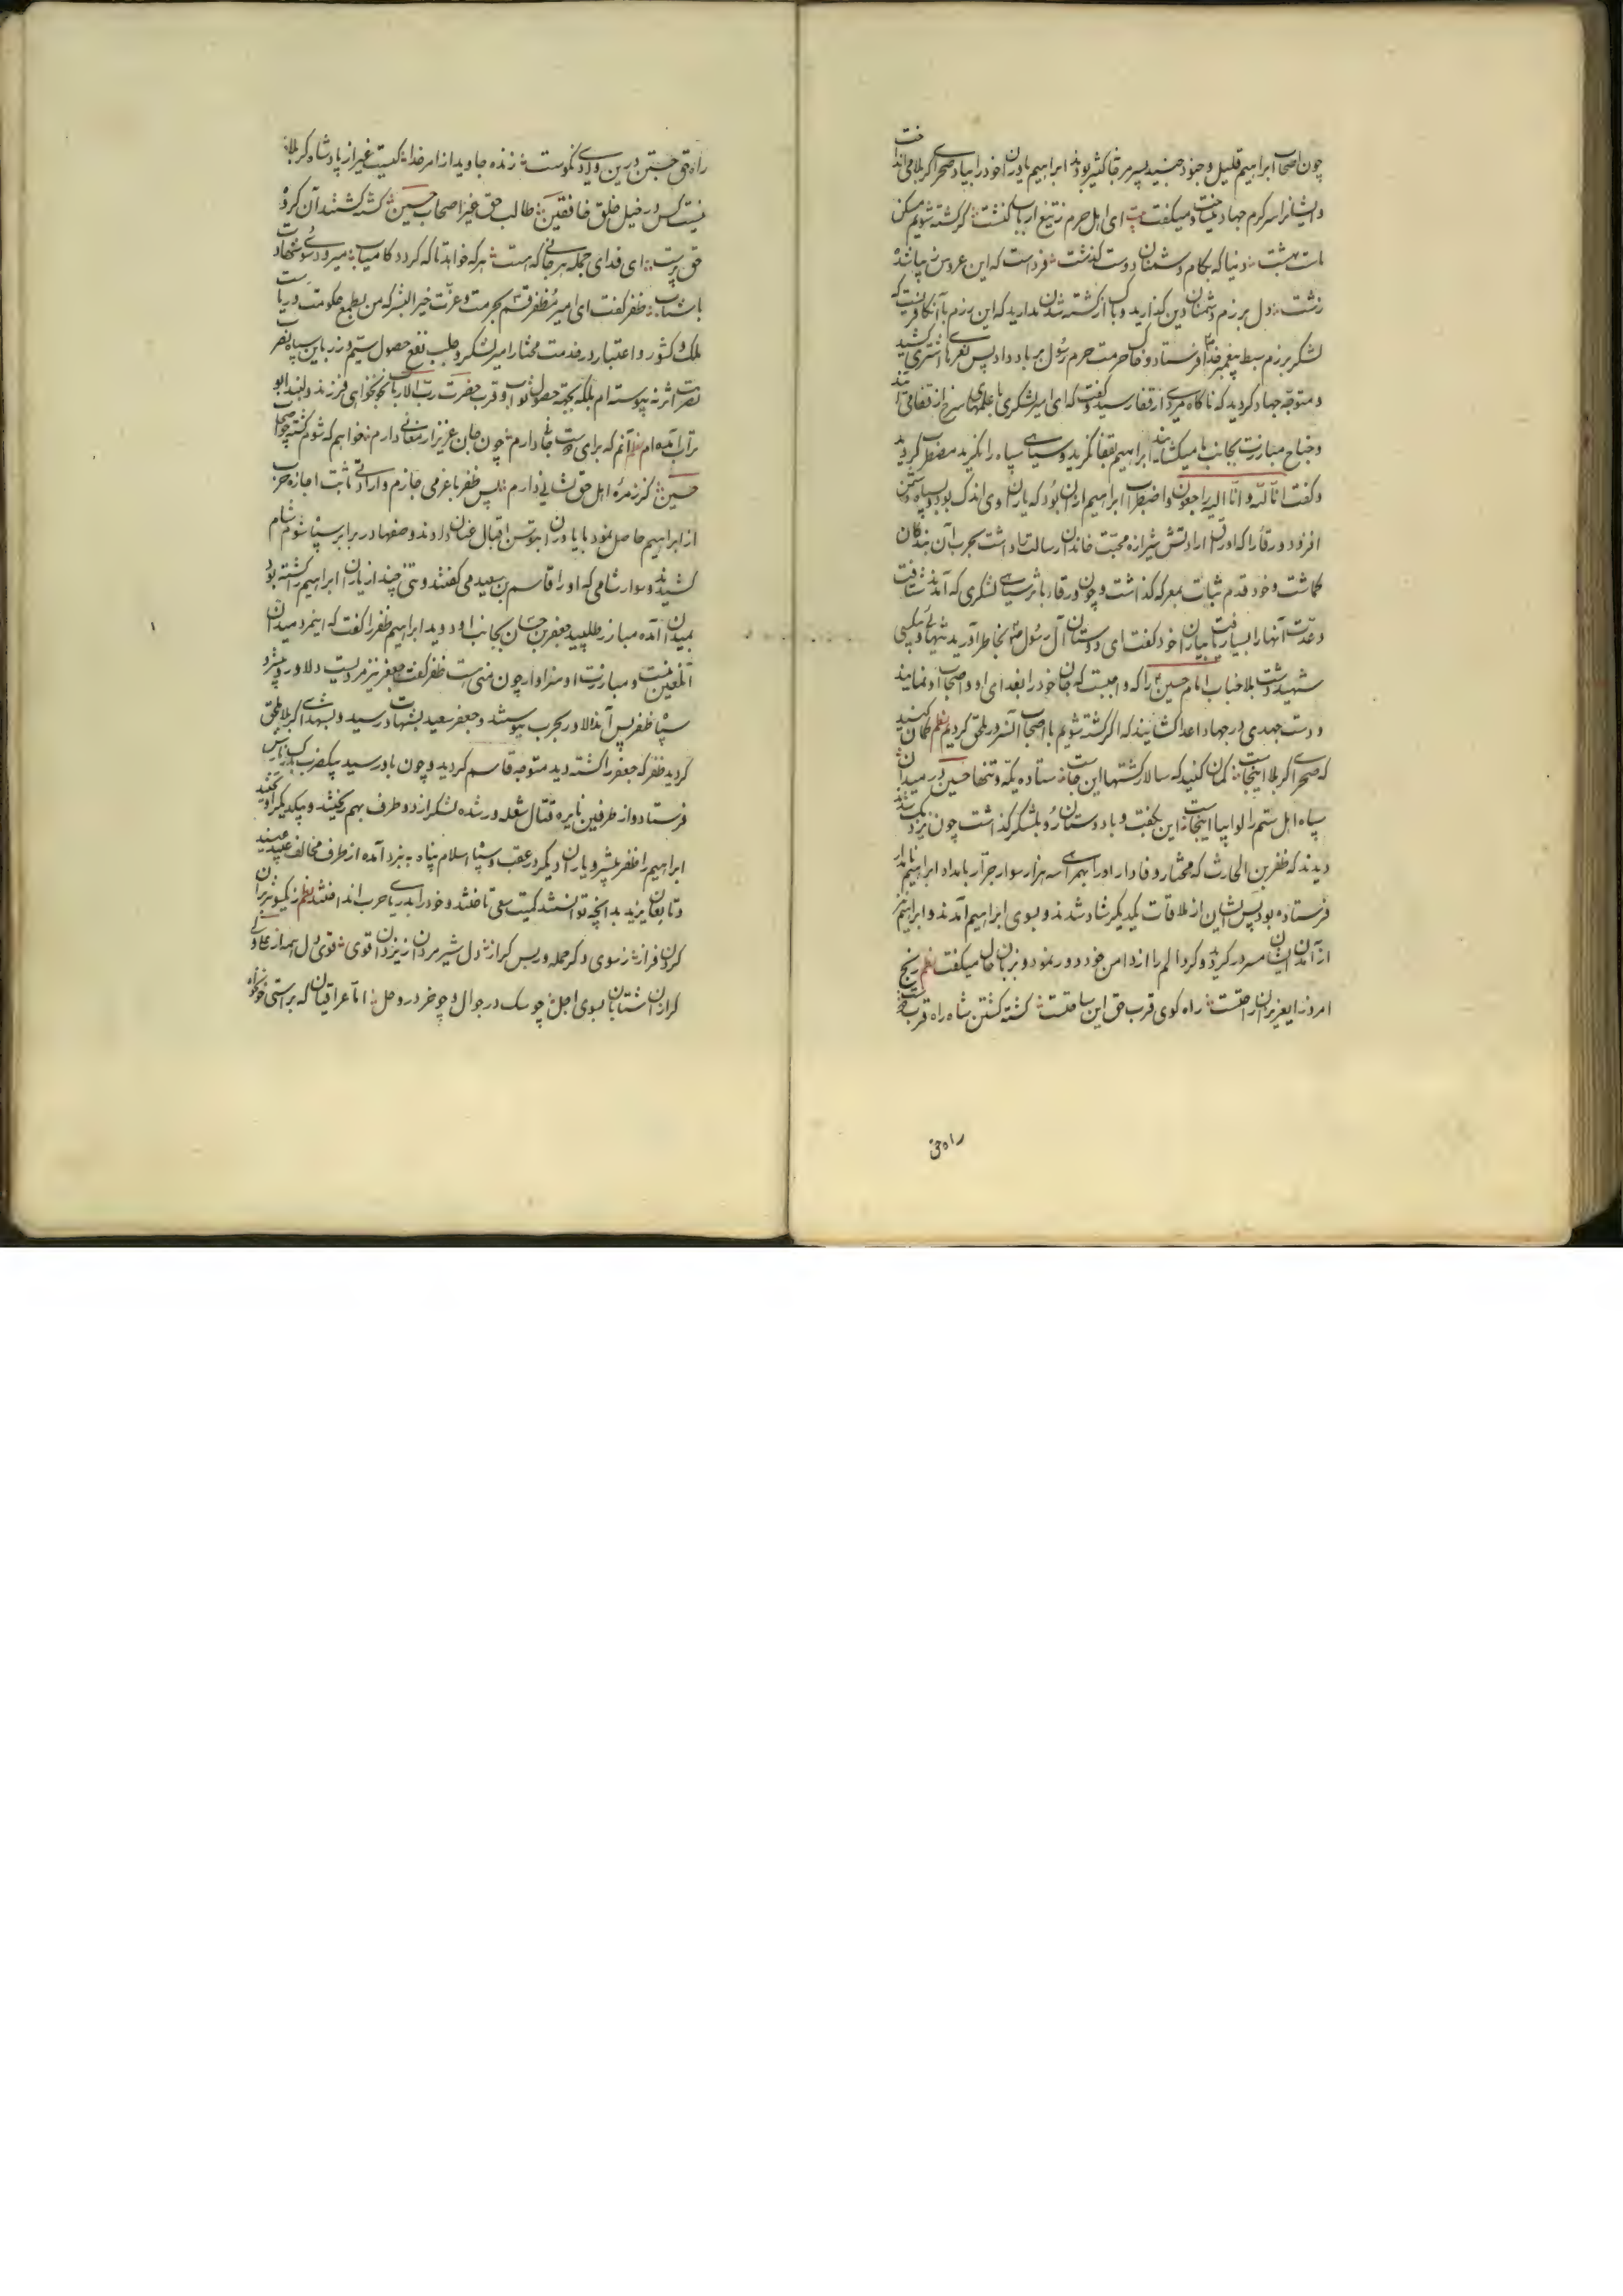 چون اصحاب ابراهیم قلیل و جنود جنید پسر مرقا کثیر بودند ابراهیم یاوران خود را بیاد صحرای کربلا می انداخت
و ایشانرا سرگرم جهاد میساخت و میگفت بیت ای اهل حرم ز تیغ ارباب کنشت گر کشته شویم مسکن
ماست بهشت دنیا که بکام دشمنان دوست گذشت فرداست که این عروس
زشت دل بر رزم دشمنان دین گذارید و باک از کشته شدن ندارید که این رزم با آن کافریست که
لشکر برزم سبط پیغمبر خدا فرستاد و خاک حرمت حرم رسول بر باد داد پس نعره کشید
و متوجه جهاد گردید که ناگاه مردی از قفا رسید و گفت که ای امیر لشکری با علمهای سرخ از قفا می آیند
و جناح مبارزت بجانب ما میگشایند ابراهیم بقفا نگرید و سیاهی سپاه را نگرید مضطرب گردید
و گفت انا لله و انا الیه راجعون و اضطراب ابراهیم ازان بود که یاران وی اندک بود و سپاه دشمن
افزود و ورقا را که اوراق ارادتش شیرازه محبت خاندان رسالت داشت بحرب آن
گماشت و خود قدم ثبات بمعرکه گذاشت و چون ورقا بر سیاهی لشکری که آمدند شتافت
و عدت آنها را بسیار یافت بیاران خود گفت ای دوستان آل رسول بخاطر آورید تنهایی و بیکسی
شهید دشت بلا جناب امام حسین را که واجبست که جان خود را بفدای او و اصحاب او نمایند
و دست جهدی در جهاد اعدا گشایند که اگر کشته شویم با اصحاب آنسرور ملحق گردیم نظم گمان کنید
که صحرای کربلا اینجاست گمان کنید که سالار کشتها این جاست ستاده یکه و تنها حسین در میدان
سپاه اهل ستم را لوا بپا اینجاست این بگفت و با دوستان رو بلشکر گذاشت چون نزدیک شد
دیدند که ظفر بن الحارث که مختار وفادار او را بهمراهی سه هزار سوار جرار بامداد ابراهیم نامدار
فرستاده بود پس ایشان از ملاقات یکدیگر شاد شدند و بسوی ابراهیم آمدند و ابراهیم نیز
از آمدن ایشان مسرور گردید و گرد الم را از دامن خود دور نمود و بزبان حال میگفت نظم رنج
امروز ای عزیزان راحتست راه کوی قرب حق این ساعتست کشته گشتن شاه راه قرب اوست
راه حق
راه حق جستن درین وادی نکوست زنده جاوید از امر خدا کیست غیر از پادشاه کربلا
نیست کس در خیل خلق خافقین طالب حق غیر اصحاب حسین کشته گشتند آن گروه
حق پرست ای فدای جمله هر جانی که هست هر که خواهد تا که گردد کامیاب میرود سوی شهادت
با شتاب ظفر گفت ای امیر مظفر قسم بحرمت و عزت خیر البشر که من بطمع حکومت و ریاست
ملک و کشور و اعتبار در خدمت مختار امیر لشکر و طلب نفع حصول سیم و زر باین سپاه نصرت
نصرت اثر نه پیوسته ام بلکه بجهت حصول ثواب و قرب حضرت رب الارباب بخونخواهی فرزند دلبند ابو
تراب آمده ام نظم آنم که برای دوست جانی دارم چون جان عزیز ارمغانی دارم خواهم که شوم کشته چو اصحاب
حسین کز زمره اهل حق نشانی دارم پس ظفر با عزمی جازم و ارادتی ثابت اجازه حرب
از ابراهیم حاصل نمود با یاوران بتوسن اقبال عنان دادند و صفها در برابر سپاه شوم شام
کشیدند و سوار شامی که او را قاسم بن سعید می گفتند و تنی چند از یاران ابراهیم را کشته بود
بمیدان آمده مبارز طلبید جعفر بن حسان بجانب او دوید ابراهیم ظفر را گفت که اینمرد میدان
آنلعین نیست و مبارزت او سزاوار چون منی است ظفر گفت جعفر نیز مردیست دلاور و پیشرو
سپاه ظفر پس آندلاور بحرب پیوستند و جعفر سعید بشهادت رسید و بشهدای کربلا ملحق
گردید ظفر که جعفر را کشته دید متوجه قاسم گردید و چون باو رسید بیک ضرب
فرستاد و از طرفین نایره قتال شعله ور شده لشکر از دو طرف بهم ریختند و بیکدیگر آویختند
ابراهیم را ظفر پیشرو یاران دیگر در عقب و سپاه اسلام پناه به نبرد آمده از طرف مخالف
و تابعان یزید بدانچه توانستند کمیت سعی تاختند و خود را بدریای حرب انداختند نظم ز یکسو
گردن فراز ز سوی دگر حمله ور بس گراز دل شیر مردان ز یزدان قوی قوی دل همه از
گرازان شتابان بسوی اجل چو سگ در جوال و چو خر در وحل اما عراقیان که براستی خونخواه